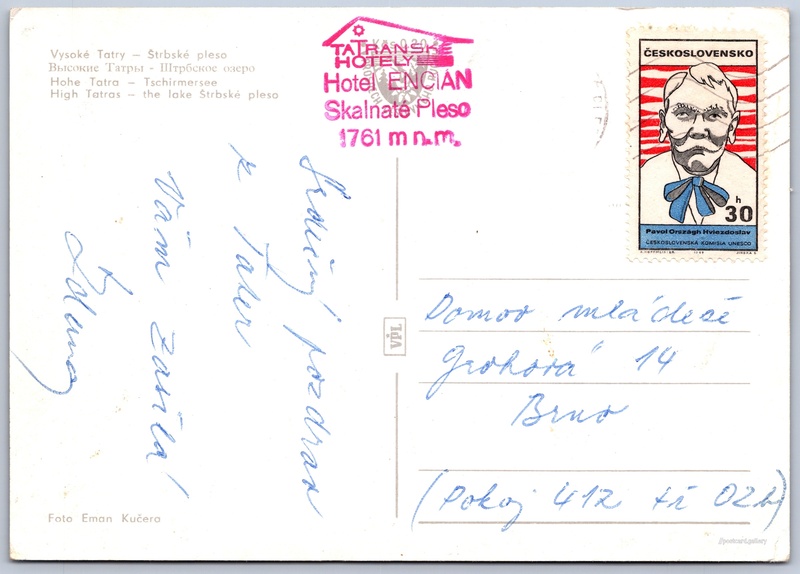 Vysoké Tatry — Štrbské pleso
Высокие Татры - Штрбское озеро
Hohe Tatra — Tschirmersee
High Tatras — the lake Štrbské pleso
TATRANSKÉ
HOTELY
Hotel ENCIÁN
Skalnaté Pleso
1761 m n.m.
ČESKOSLOVENSKO
h
30
Pavol Országh Hviezdoslav
ČESKOSLOVENSKÁ KOMISIA UNESCO
Srdečný pozdrav
z Tater
Vám zasílá
Zdena
Domov mládeže
14
Brno
(Pokoj 412
Foto Eman Kučera